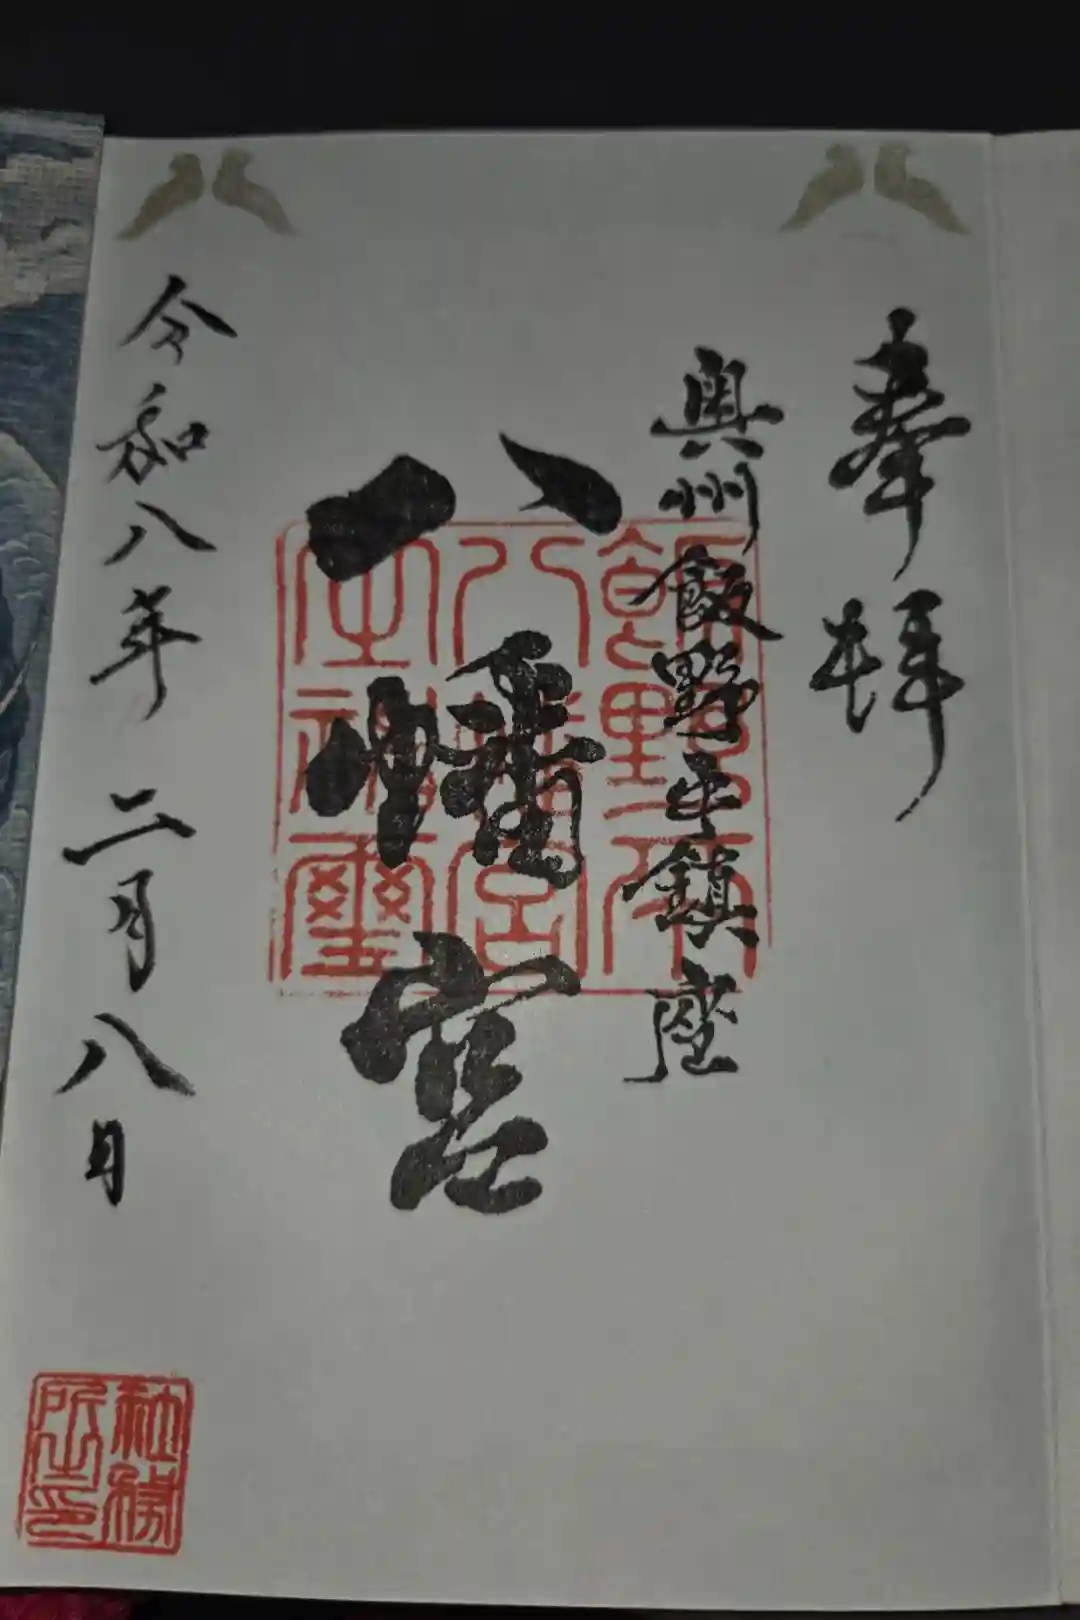 奉拝
奥州飯野平鎮座
八幡宮
令和八年二月八日
飯野平
八幡宮
之神璽
社務
所之印